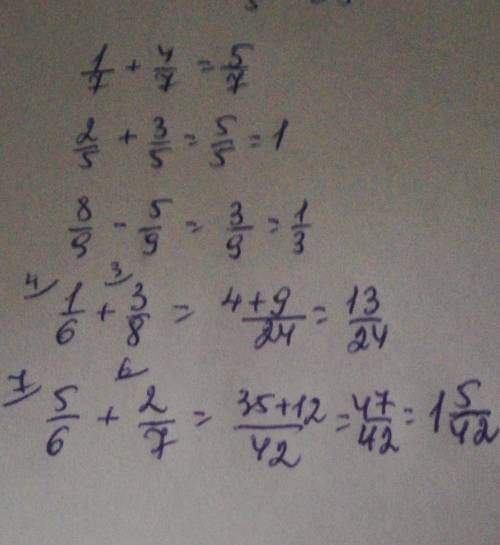 1/7 + 4/7 = 5/7
2/5 + 3/5 = 5/5 = 1
8/9 - 5/9 = 3/9 = 1/3
4) 1/6 + 3) 3/8 = 4+9/24 = 13/24
7) 5/6 + 6) 2/7 = 35+12/42 = 47/42 = 1 5/42